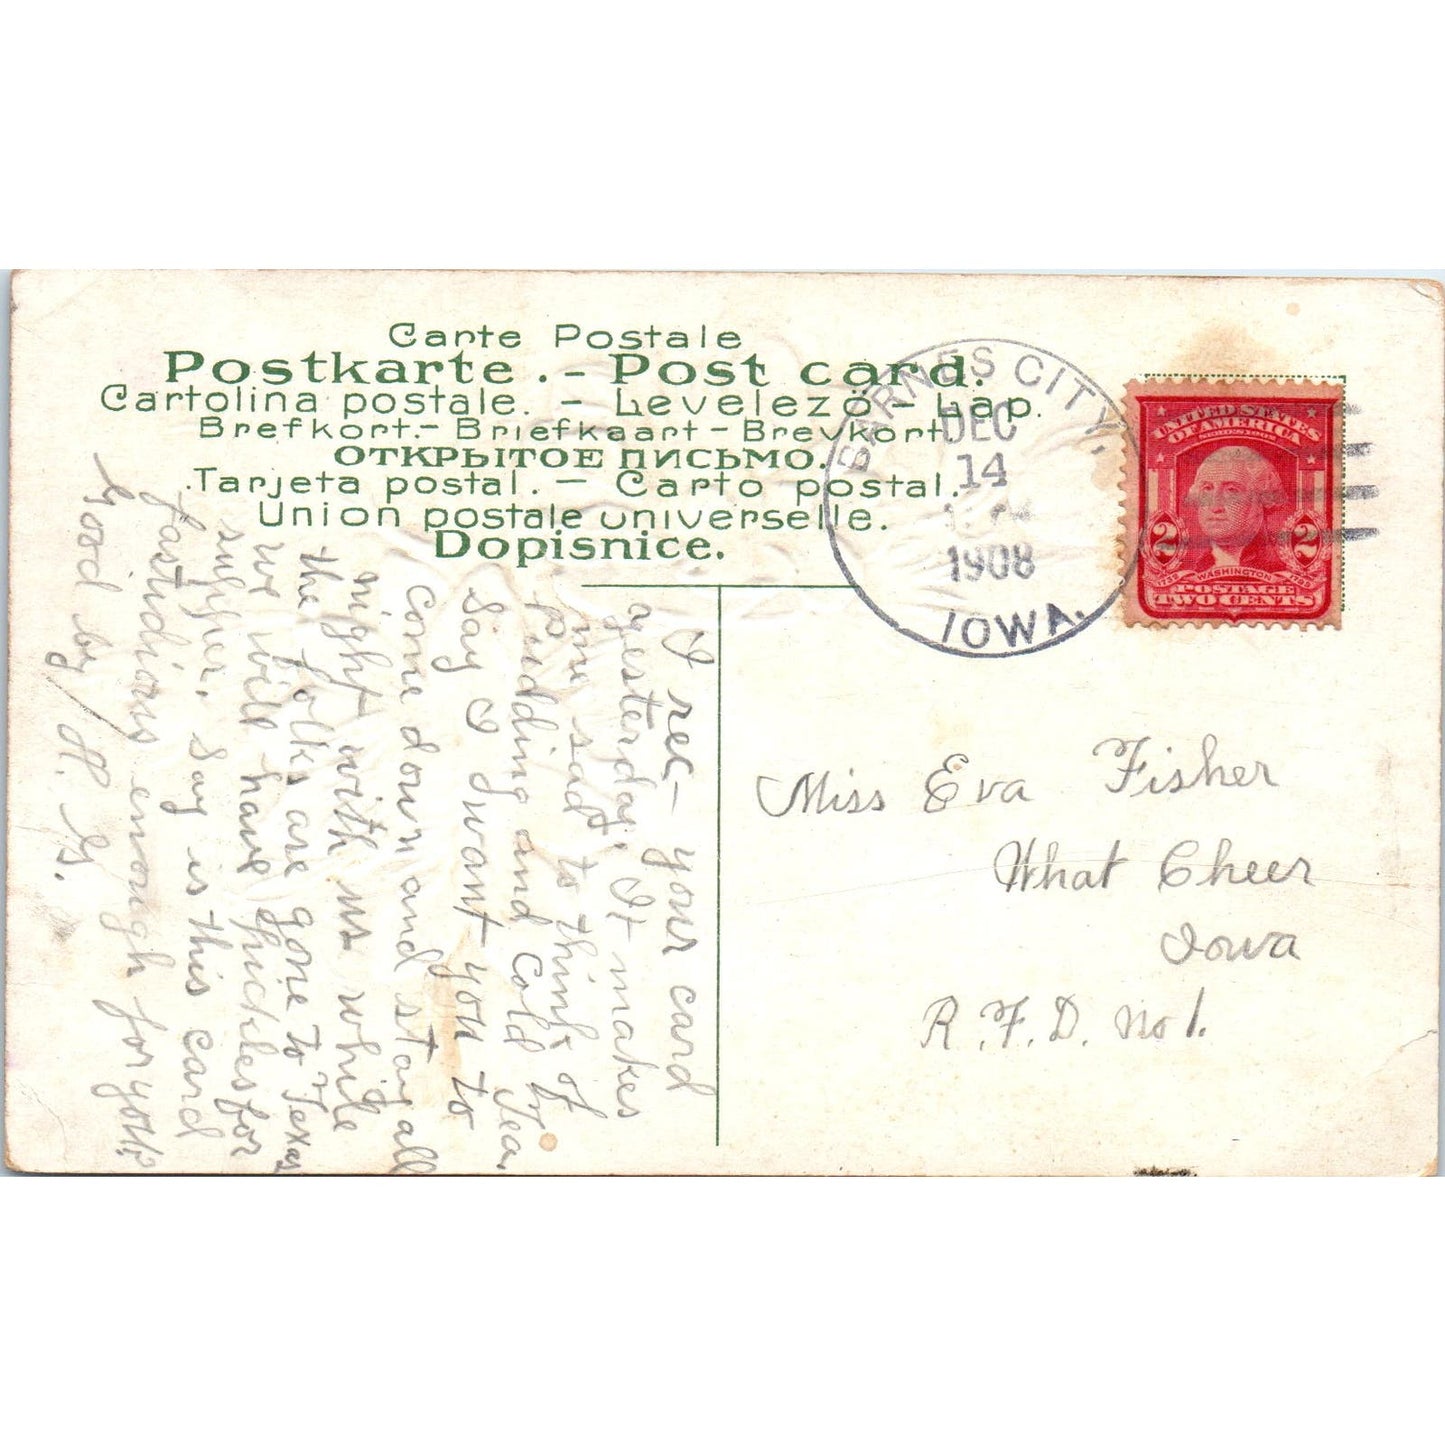 Carte Postale
Postkarte . - Post card.
Cartolina postale. - Levelező - Lap.
Brefkort.- Briefkaart - Brevkort
ОТКРЫТОЕ ПИСЬМО.
.Tarjeta postal. - Carto postal.
Union postale universelle.
Dopisnice.
BARNES CITY,
DEC
14
1908
IOWA.
UNITED STATES
OF AMERICA
SERIES 1902
2 2
1732 WASHINGTON 1799
POSTAGE
TWO CENTS
I rec- your card
yesterday. It makes
me sad to think of
Pudding and Cold Tea.
Say I want you to
come down and stay all
night with us while
the folks are gone to Texas
we will have pickles for
supper. Say is this card
fastidious enough for you?
Good by / H. G.
Miss Eva Fisher
What Cheer
Iowa
R.F.D. No 1.